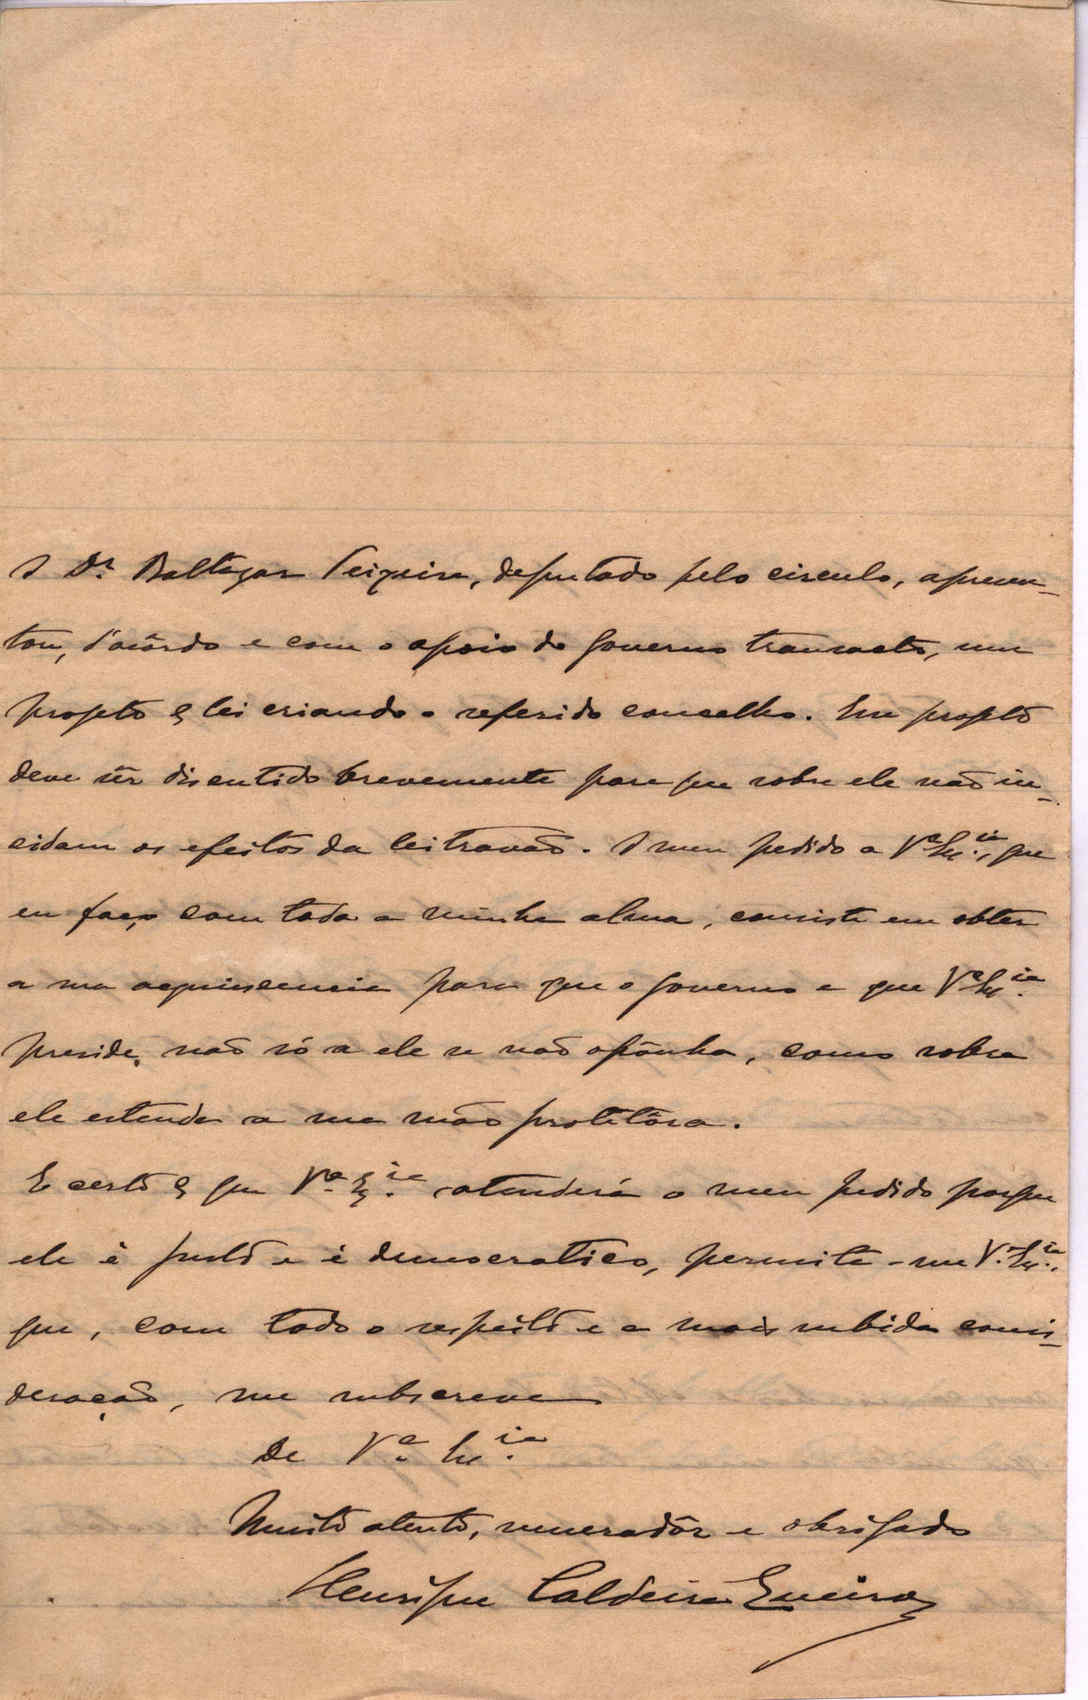 O Dr. Baltazar Teixeira, deputado pelo circulo, apresen-
tou, d'acôrdo e com o apoio do governo transacto, um
projeto de lei criando o referido concelho. Esse projeto
deve sêr discutido brevemente para que sobre ele não in-
cidam os efeitos da lei travão. O meu pedido a V.ª Ex.cia, que
eu faço com toda a minha alma, consiste em obter
a sua aquiescencia para que o governo a que V.ª Ex.cia
preside, não só a ele se não oponha, como sobre
ele estenda a sua mão protetôra.
E certo de que V.ª Ex.cia atenderá o meu pedido porque
ele é justo e é democratico, permita-me V. Ex.cia,
que, com todo o respeito e a mais subida consi-
deração, me subscreva
De V.ª Ex.cia
Muito atento, veneradôr e obrigado
Henrique Caldeira Queiroz